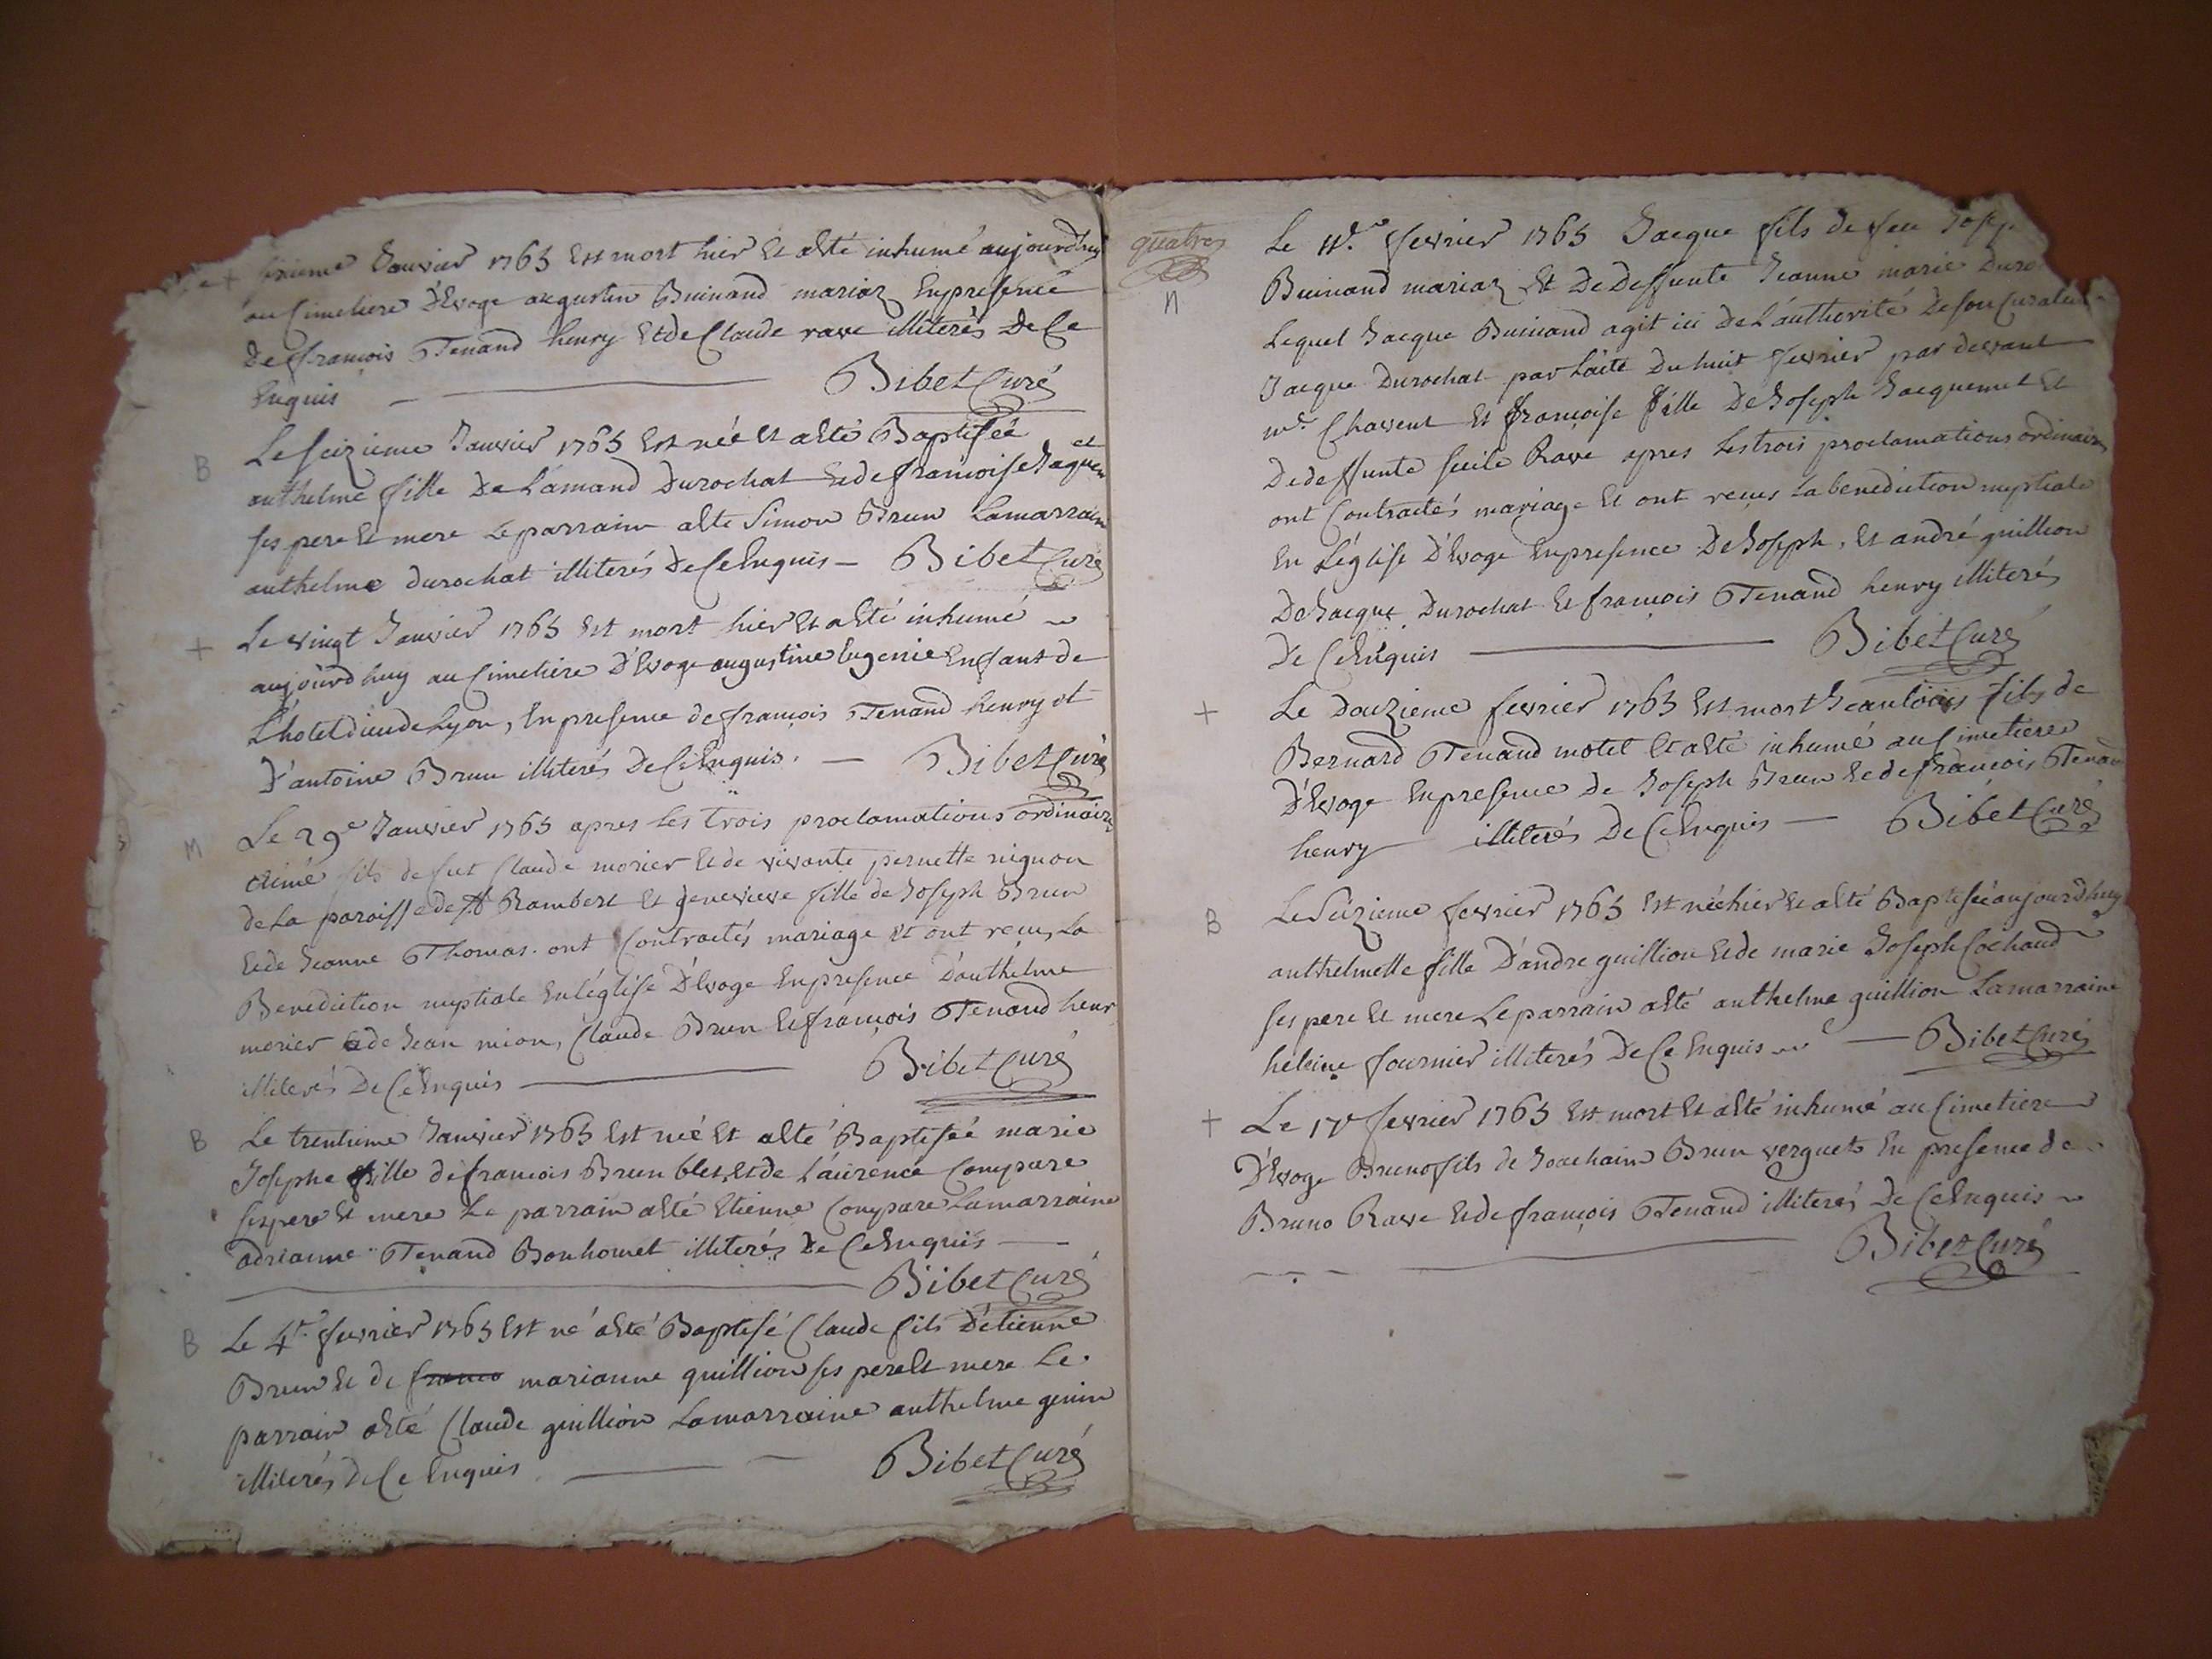 Janvier 1765 Est mort hier Et aEté inhumé aujourdhuy
au Cimetiere D'Evoge augustin Buinand mariaz Enpresence
De françois Tenand henry Et de Claude rave illiterés De Ce
Enquis Bibet Curé
B
Le seizieme Janvier 1765 Est née Et aEté Baptisée
anthelme fille De Lamand Durochat Et de françoise Jaquemet
ses pere Et mere Le parrain aEté Simon Brun La marraine
anthelme durochat illiterés De Ce Enquis — Bibet Curé
+
Le vingt Janvier 1765 Est mort hier Et aEté inhumé
aujourdhuy au Cimetiere D'Evoge augustine Eugenie Enfant de
L'hotel dieu de Lyon, En presence de françois Tenand henry et
D'antoine Brun illiterés De Ce Enquis. — Bibet Curé
M
Le 29e Janvier 1765 apres Les trois proclamations ordinaires
Aimé fils de fut Claude morier Et de vivante pernette nignon
de La paroisse de St Rambert Et genevieve fille de Joseph Brun
Et de Jeanne Thomas. ont Contractés mariage Et ont recus La
Benediction nuptiale En l'église D'Evoge Enpresence D'anthelme
morier Et de Jean mion, Claude Brun Et françois Tenand henry
illiterés De Ce Enquis Bibet Curé
B
Le trentieme Janvier 1765 Est née Et aEté Baptisée marie
Josephe fille de françois Brun blet, Et de L'aurence Compare
ses pere Et mere Le parrain aEté Etienne Compare La marraine
adrianne Tenand Bonhomet illiterés De Ce Enquis —
Bibet Curé
B
Le 4e fevrier 1765 Est né aEté Baptisé Claude fils D'étienne
Brun Et de marianne guillion ses pere Et mere Le
parrain aEté Claude guillion La marraine anthelme genin
illiterés De Ce Enquis Bibet Curé
quatres
M
Le 11e. fevrier 1765 Jacque fils de feu
Buinand mariaz Et De Deffunte Jeanne marie
Lequel Jacque Buinand agit ici De L'authorité De son Curateur
Jacque Durochat par L'acte Du huit fevrier par devant
me. Chavent Et françoise fille De Joseph Jacquemet Et
De deffunte Rave apres Les trois proclamations ordinaires
ont Contractés mariage Et ont recus La benediction nuptiale
En L'église D'Evoge Enpresence De Joseph, Et andré guillion
De Jacque Durochat Et françois Tenand henry illiterés
De Ce Enquis Bibet Curé
+
Le Douzieme fevrier 1765 Est mort Jean Louis fils de
Bernard Tenand motet Et aEté inhumé au Cimetiere
D'Evoge Enpresence De Joseph Brun Et de francois Tenand
henry illiterés De Ce Enquis — Bibet Curé
B
Le Seizieme fevrier 1765 Est née hier Et aEté Baptisée aujourdhuy
anthelmette fille D'andre guillion Et de marie Joseph Cochaud
ses pere Et mere Le parrain aEté anthelme guillion La marraine
héleine fournier illiterés De Ce Enquis — Bibet Curé
+
Le 17e fevrier 1765 Est mort Et aEté inhumé au Cimetiere
D'Evoge Bruno fils de Joachain Brun verguet En presence de
Bruno Rave Et de françois Tenand illiterés De Ce Enquis
Bibet Curé